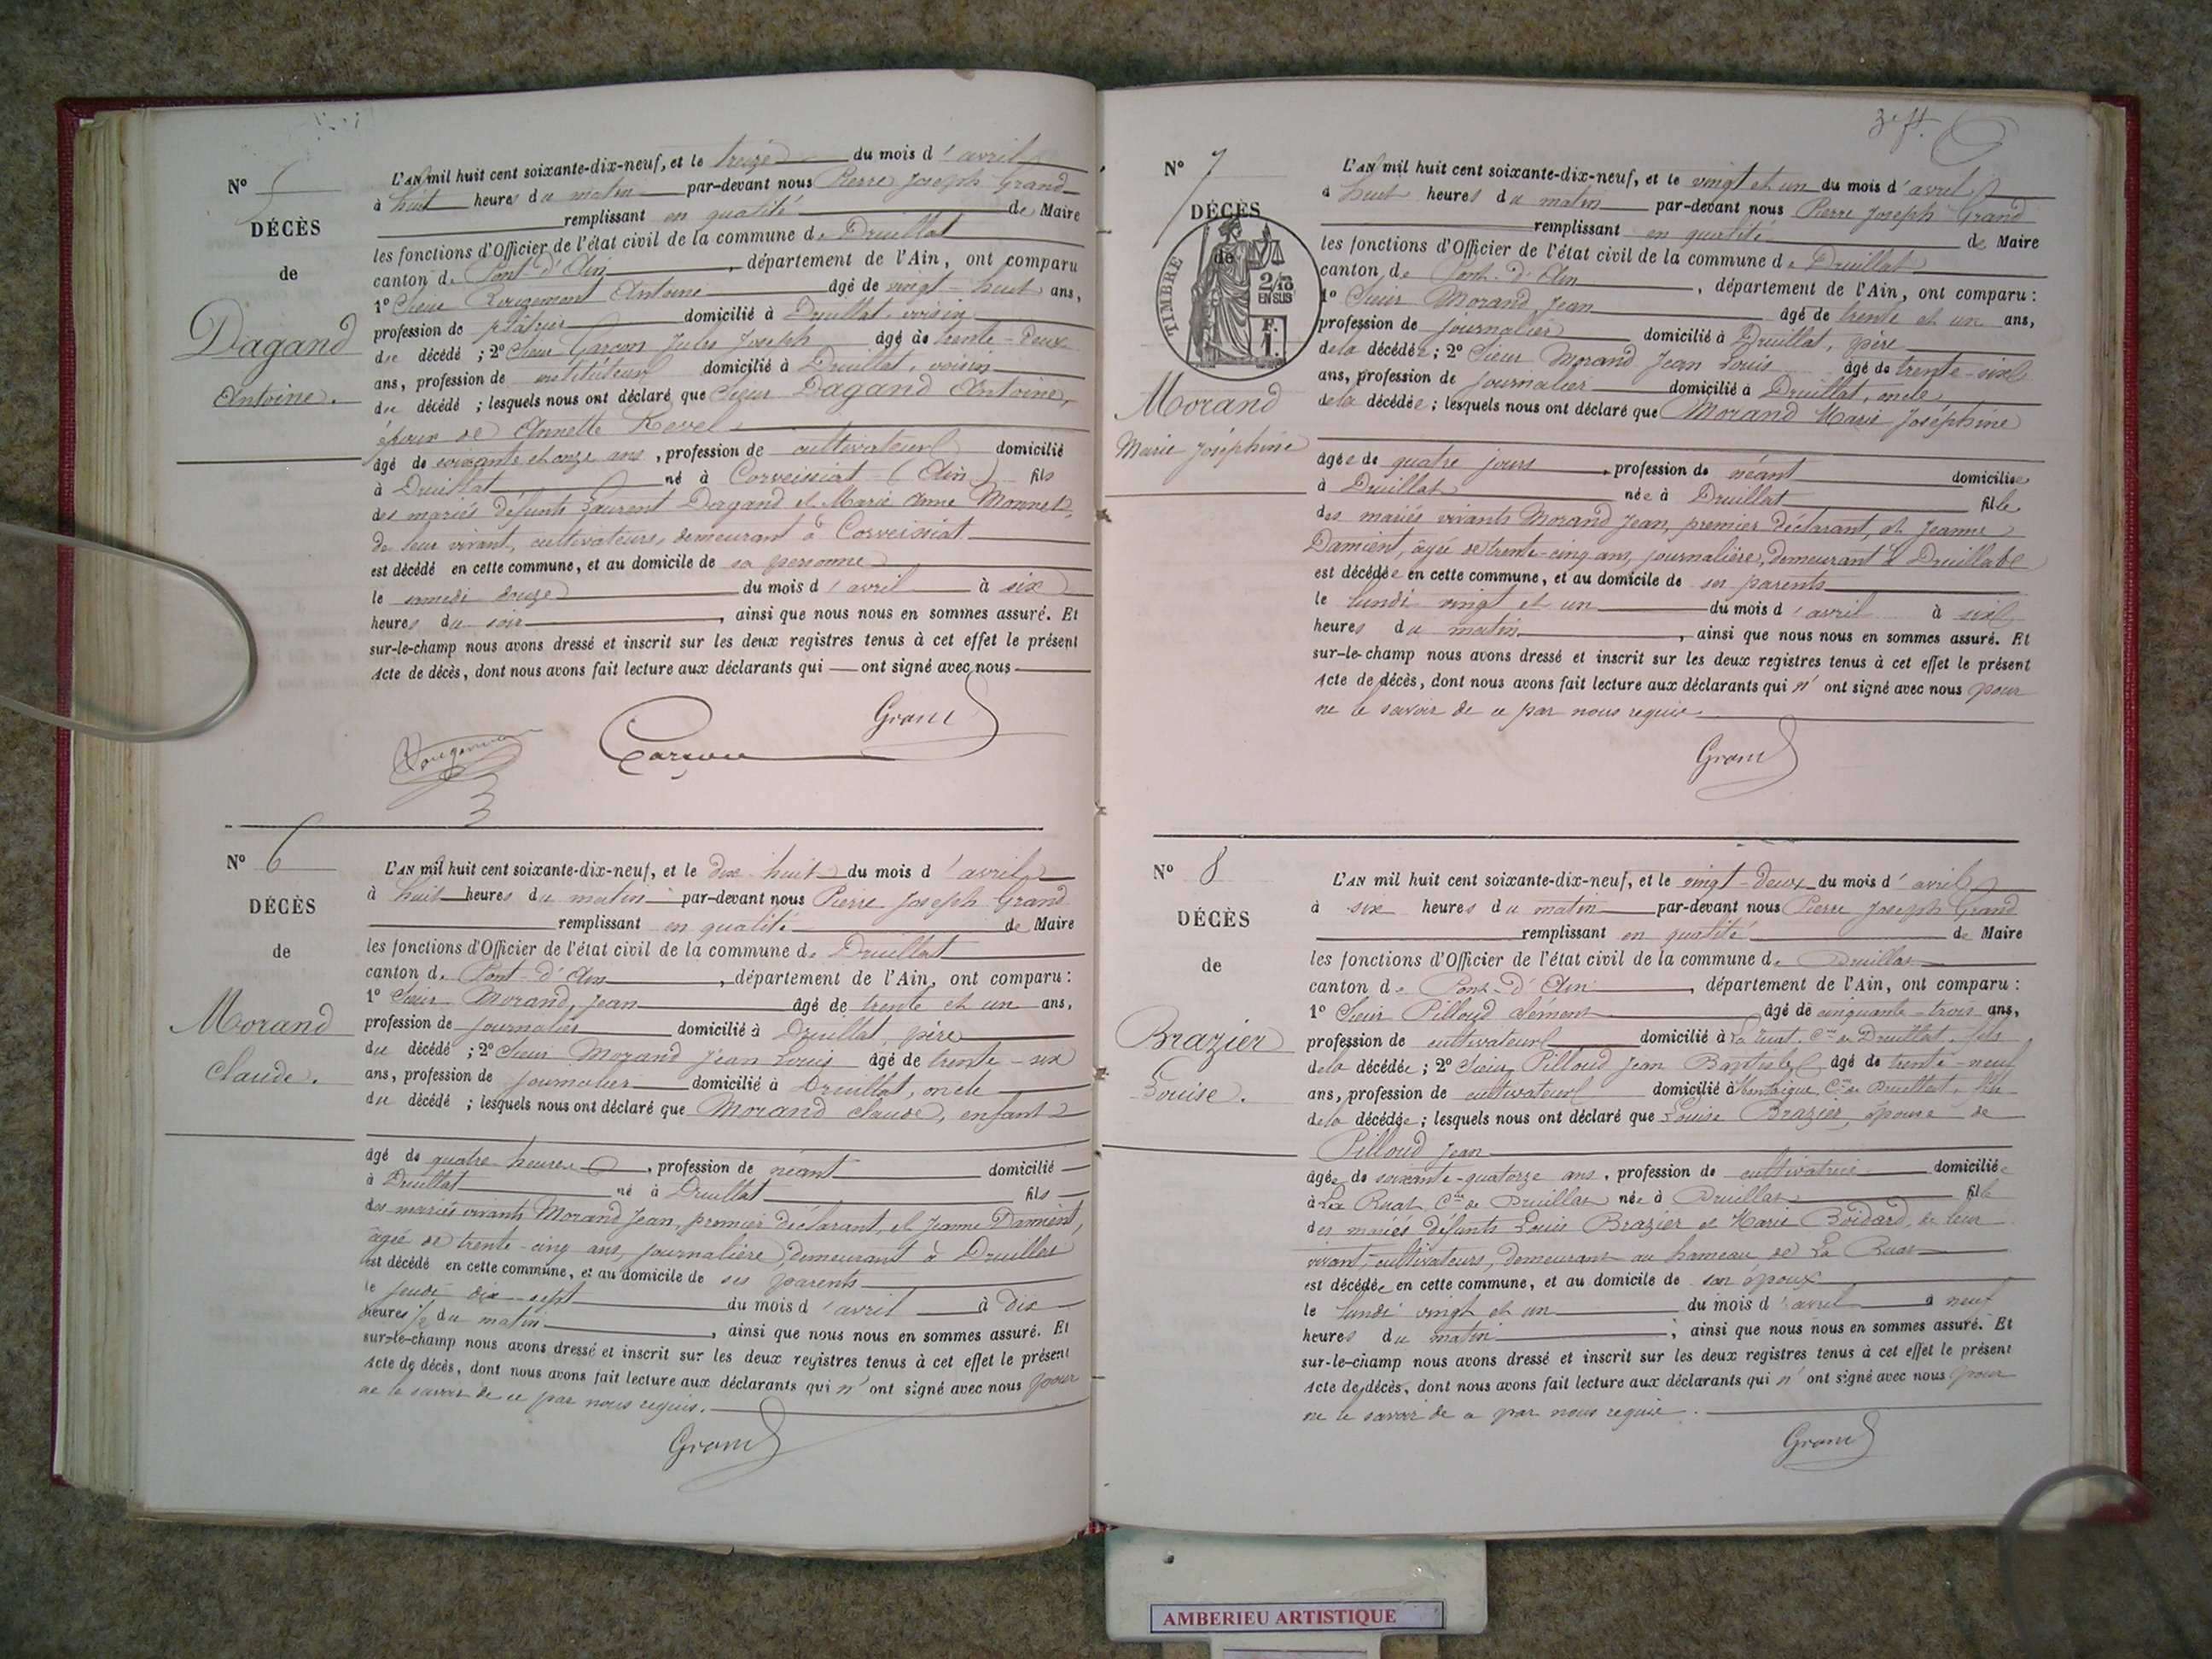 N° 5
DÉCÈS
de
Dagand
Antoine.
L'AN mil huit cent soixante-dix-neuf, et le treize du mois d'avril
à huit heures du matin par-devant nous Pierre Joseph Grand
remplissant en qualité de Maire
les fonctions d'Officier de l'état civil de la commune de Druillat
canton de Pont d'Ain, département de l'Ain, ont comparu
1° Sieur Rougemont Antoine âgé de vingt-huit ans,
profession de plâtrier domicilié à Druillat, voisin
du décédé ; 2° Sieur Garçon Jules Joseph âgé de trente-deux
ans, profession de instituteur domicilié à Druillat, voisin
du décédé ; lesquels nous ont déclaré que Sieur Dagand Antoine,
époux de Annette Revel
âgé de soixante et onze ans, profession de cultivateur domicilié
à Druillat né à Corveissiat (Ain) fils
des mariés défunts Laurent Dagand et Marie Anne Monnet,
de leur vivant, cultivateurs, demeurant à Corveissiat
est décédé en cette commune, et au domicile de sa personne
le samedi douze du mois d'avril à six
heures du soir, ainsi que nous nous en sommes assuré. Et
sur-le-champ nous avons dressé et inscrit sur les deux registres tenus à cet effet le présent
Acte de décès, dont nous avons fait lecture aux déclarants qui ont signé avec nous
Grand
Rougemont Garçon
N° 6
DÉCÈS
de
Morand
Claude.
L'AN mil huit cent soixante-dix-neuf, et le dix huit du mois d'avril
à huit heures du matin par-devant nous Pierre Joseph Grand
remplissant en qualité de Maire
les fonctions d'Officier de l'état civil de la commune de Druillat
canton de Pont-d'Ain, département de l'Ain, ont comparu :
1° Sieur Morand, Jean âgé de trente et un ans,
profession de journalier domicilié à Druillat, père
du décédé ; 2° Sieur Morand Jean Louis âgé de trente-six
ans, profession de journalier domicilié à Druillat, oncle
du décédé ; lesquels nous ont déclaré que Morand Claude, enfant
âgé de quatre heures, profession de néant domicilié
à Druillat né à Druillat fils
des mariés vivants Morand Jean, premier déclarant, et Jeanne Damient,
âgée de trente-cinq ans, journalière, demeurant à Druillat
est décédé en cette commune, et au domicile de ses parents
le jeudi dix-sept du mois d'avril à dix
heures ½ du matin, ainsi que nous nous en sommes assuré. Et
sur-le-champ nous avons dressé et inscrit sur les deux registres tenus à cet effet le présent
Acte de décès, dont nous avons fait lecture aux déclarants qui n'ont signé avec nous pour
ne le savoir de ce par nous requis.
Grand
N° 7
DÉCÈS
de
TIMBRE
2/10
EN SUS
F.
1.
Morand
Marie Joséphine
L'AN mil huit cent soixante-dix-neuf, et le vingt et un du mois d'avril
à huit heures du matin par-devant nous Pierre Joseph Grand
remplissant en qualité de Maire
les fonctions d'Officier de l'état civil de la commune de Druillat
canton de Pont-d'Ain, département de l'Ain, ont comparu :
1° Sieur Morand, Jean âgé de trente et un ans,
profession de journalier domicilié à Druillat, père
de la décédée ; 2° Sieur Morand Jean Louis âgé de trente-six
ans, profession de journalier domicilié à Druillat, oncle
de la décédée ; lesquels nous ont déclaré que Morand Marie Joséphine
âgée de quatre jours, profession de néant domiciliée
à Druillat née à Druillat fille
des mariés vivants Morand Jean, premier déclarant, et Jeanne
Damient, âgée de trente-cinq ans, journalière, demeurant à Druillat
est décédée en cette commune, et au domicile de ses parents
le lundi vingt et un du mois d'avril à six
heures du matin, ainsi que nous nous en sommes assuré. Et
sur-le-champ nous avons dressé et inscrit sur les deux registres tenus à cet effet le présent
Acte de décès, dont nous avons fait lecture aux déclarants qui n'ont signé avec nous pour
ne le savoir de ce par nous requis
Grand
N° 8
DÉCÈS
de
Brazier
Louise.
L'AN mil huit cent soixante-dix-neuf, et le vingt-deux du mois d'avril
à six heures du matin par-devant nous Pierre Joseph Grand
remplissant en qualité de Maire
les fonctions d'Officier de l'état civil de la commune de Druillat
canton de Pont-d'Ain, département de l'Ain, ont comparu :
1° Sieur Pilloud Clément âgé de cinquante-trois ans,
profession de cultivateur domicilié à La Ruat, Cne de Druillat, fils
de la décédée ; 2° Sieur Pilloud Jean Baptiste âgé de trente-neuf
ans, profession de cultivateur domicilié à Cne de Druillat, fils
de la décédée ; lesquels nous ont déclaré que Louise Brazier, épouse de
Pilloud Jean
âgée de soixante-quatorze ans, profession de cultivatrice domiciliée
à La Ruat, Cne de Druillat née à Druillat fille
des mariés défunts Louis Brazier et Marie Boidard, de leur
vivant, cultivateurs, demeurant au hameau de La Ruat
est décédée en cette commune, et au domicile de son époux
le lundi vingt et un du mois d'avril à neuf
heures du matin ; ainsi que nous nous en sommes assuré. Et
sur-le-champ nous avons dressé et inscrit sur les deux registres tenus à cet effet le présent
Acte de décès, dont nous avons fait lecture aux déclarants qui n'ont signé avec nous pour
ne le savoir de ce par nous requis.
Grand
AMBERIEU ARTISTIQUE